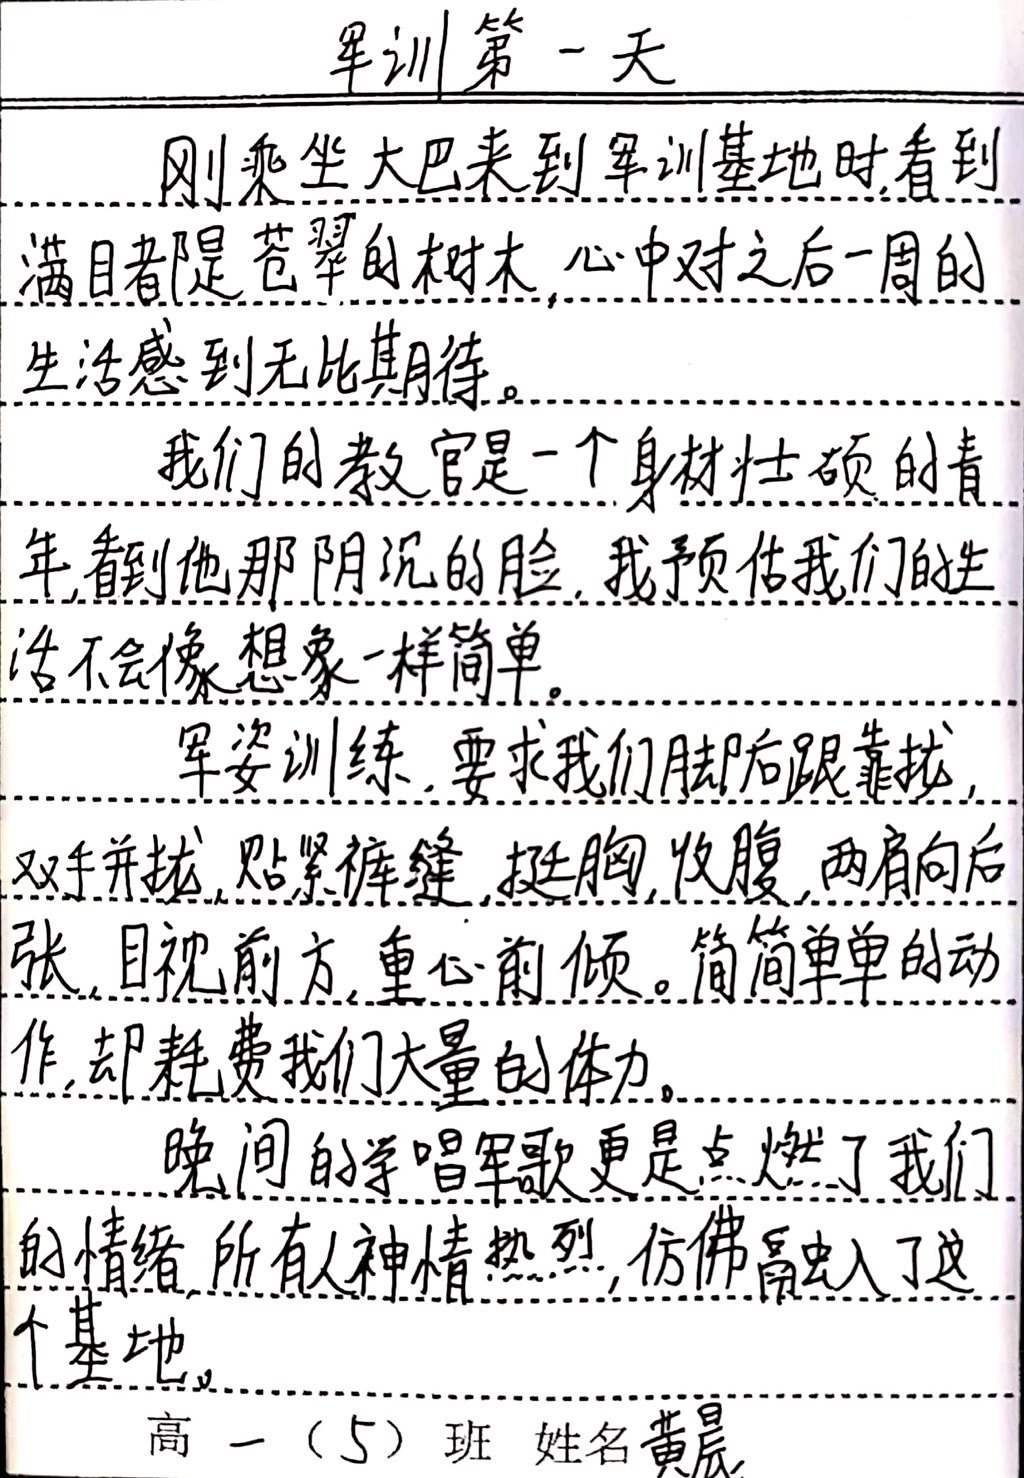 军训第一天
刚乘坐大巴来到军训基地时,看到
满目都是苍翠的树木,心中对之后一周的
生活感到无比期待。
我们的教官是一个身材壮硕的青
年,看到他那阴沉的脸,我预估我们的生
活不会像想象一样简单。
军姿训练,要求我们脚后跟靠拢,
双手并拢,贴紧裤缝,挺胸,收腹,两肩向后
张,目视前方,重心前倾。简简单单的动
作,却耗费我们大量的体力。
晚间的学唱军歌更是点燃了我们
的情绪,所有人神情热烈,仿佛融入了这
个基地。
高一(5)班 姓名黄晨